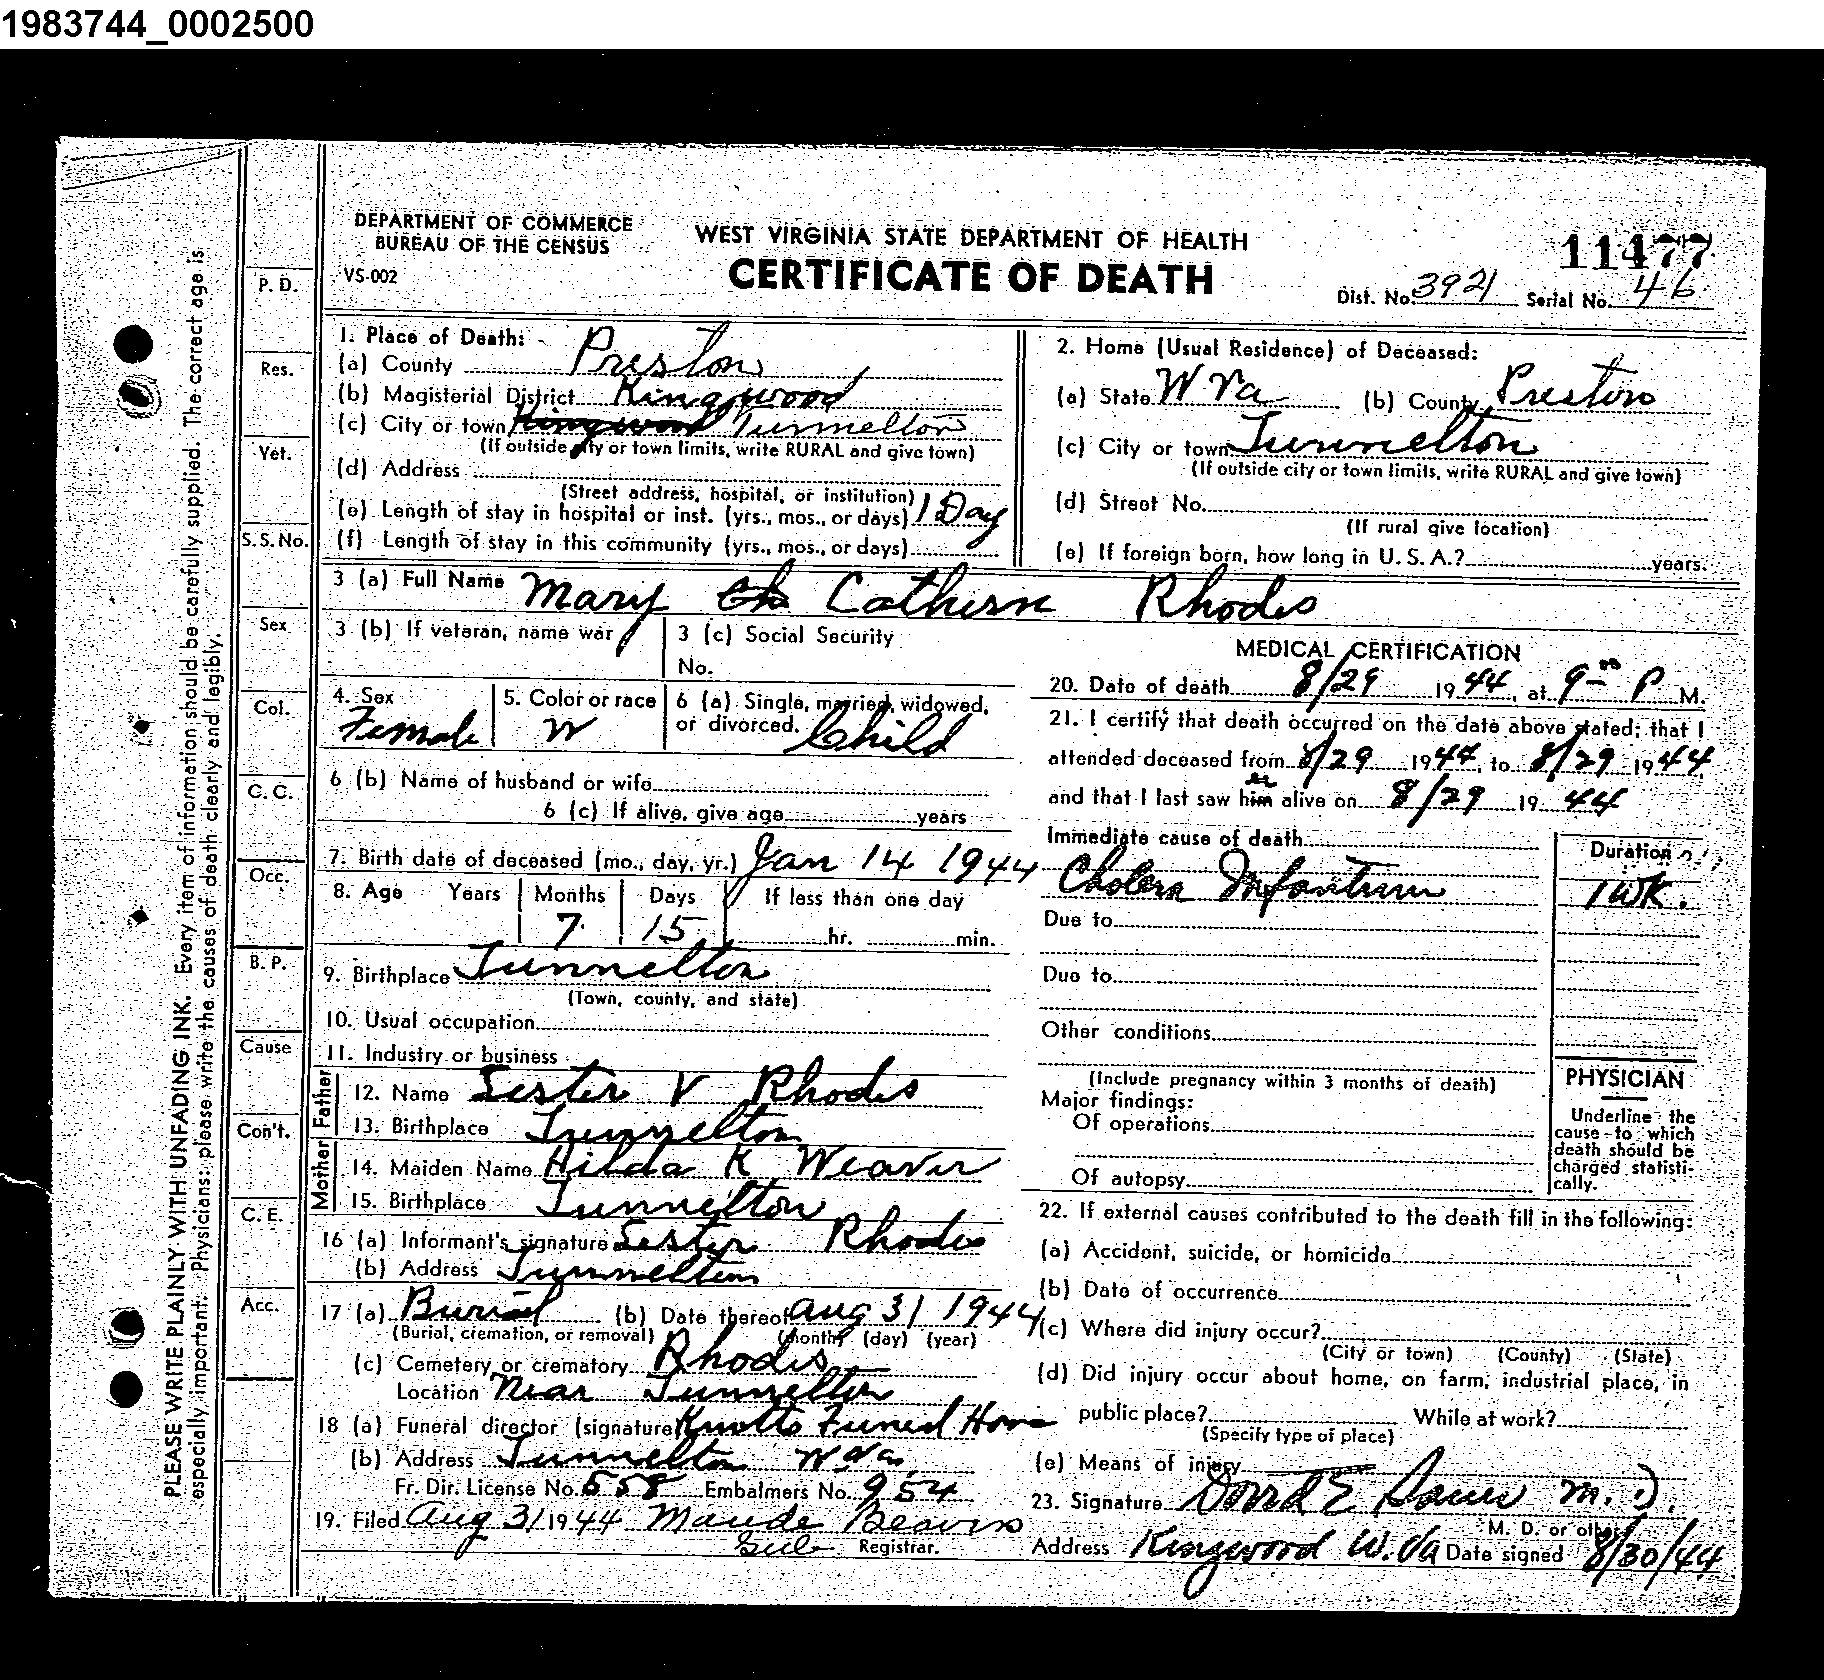 1983744_0002500
DEPARTMENT OF COMMERCE
BUREAU OF THE CENSUS
VS-002
WEST VIRGINIA STATE DEPARTMENT OF HEALTH
CERTIFICATE OF DEATH
11477
Dist. No. 3921 Serial No. 46
PLEASE WRITE PLAINLY WITH UNFADING INK. Every item of information should be carefully supplied. The correct age is
especially important. Physicians: please write the causes of death clearly and legibly.
P. D.
Res.
Vet.
S. S. No.
Sex
Col.
C. C.
Occ.
B. P.
Cause
Con't.
C. E.
Acc.
1. Place of Death:
(a) County Preston
(b) Magisterial District Kingwood
(c) City or town Kingwood Tunnelton
(If outside city or town limits, write RURAL and give town)
(d) Address
(Street address, hospital, or institution)
(e) Length of stay in hospital or inst. (yrs., mos., or days) 1 Day
(f) Length of stay in this community (yrs., mos., or days)
2. Home (Usual Residence) of Deceased:
(a) State W Va (b) County Preston
(c) City or town Tunnelton
(If outside city or town limits, write RURAL and give town)
(d) Street No.
(If rural give location)
(e) If foreign born, how long in U. S. A.? years.
3 (a) Full Name Mary Cathern Rhodes
3 (b) If veteran, name war
3 (c) Social Security
No.
4. Sex Female
5. Color or race W
6 (a) Single, married, widowed,
or divorced. Child
6 (b) Name of husband or wife
6 (c) If alive, give age years
7. Birth date of deceased (mo., day, yr.) Jan 14 1944
8. Age Years Months Days If less than one day
7 15 hr. min.
9. Birthplace Tunnelton
(Town, county, and state)
10. Usual occupation
11. Industry or business
Father
12. Name Lester V Rhodes
13. Birthplace Tunnelton
Mother
14. Maiden Name Hilda K Weaver
15. Birthplace Tunnelton
16 (a) Informant's signature Lester Rhodes
(b) Address Tunnelton
17 (a) Burial (b) Date thereof Aug 31 1944
(Burial, cremation, or removal) (month) (day) (year)
(c) Cemetery or crematory Rhodes
Location Near Tunnelton
18 (a) Funeral director (signature) Knotts Funeral Home
(b) Address Tunnelton W Va
Fr. Dir. License No. 558 Embalmers No. 954
19. Filed Aug 31 1944 Maude Beavers
Registrar.
MEDICAL CERTIFICATION
20. Date of death 8/29 1944, at 9 00 P M.
21. I certify that death occurred on the date above stated; that I
attended deceased from 8/29 1944, to 8/29 1944
and that I last saw him er alive on 8/29 1944
Immediate cause of death Duration
Cholera Infantum 1 wk.
Due to
Due to
Other conditions
(Include pregnancy within 3 months of death)
Major findings:
Of operations
Of autopsy
PHYSICIAN
Underline the
cause to which
death should be
charged statisti-
cally.
22. If external causes contributed to the death fill in the following:
(a) Accident, suicide, or homicide
(b) Date of occurrence
(c) Where did injury occur?
(City or town) (County) (State)
(d) Did injury occur about home, on farm, industrial place, in
public place? While at work?
(Specify type of place)
(e) Means of injury
23. Signature M. D.
M. D. or other
Address Kingwood W. Va Date signed 8/30/44